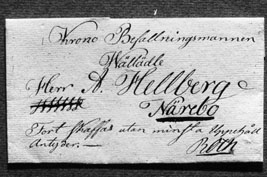 Krono Befallningsmannen
Wälädle
Herr A. Hellberg
Närebo
Fort skaffas utan minsta Uppehåll